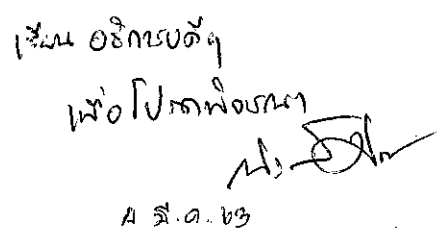 เรียน อธิการบดีฯ
เพื่อโปรดพิจารณา
มี.ค. 63